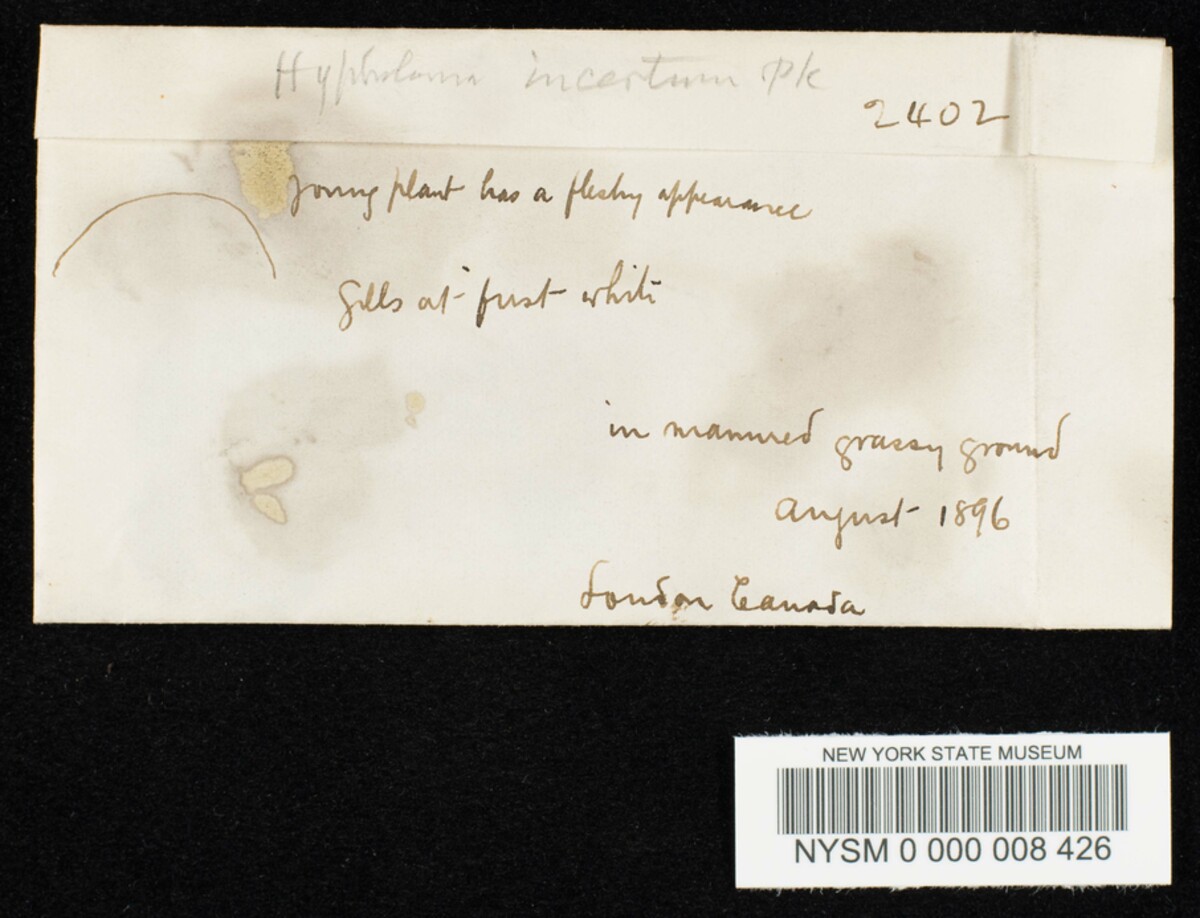 Hypholoma incertum Pk
2402
young plant has a fleshy appearance
Gills at first white
in manured grassy ground
August 1896
London Canada
NEW YORK STATE MUSEUM
NYSM 0 000 008 426